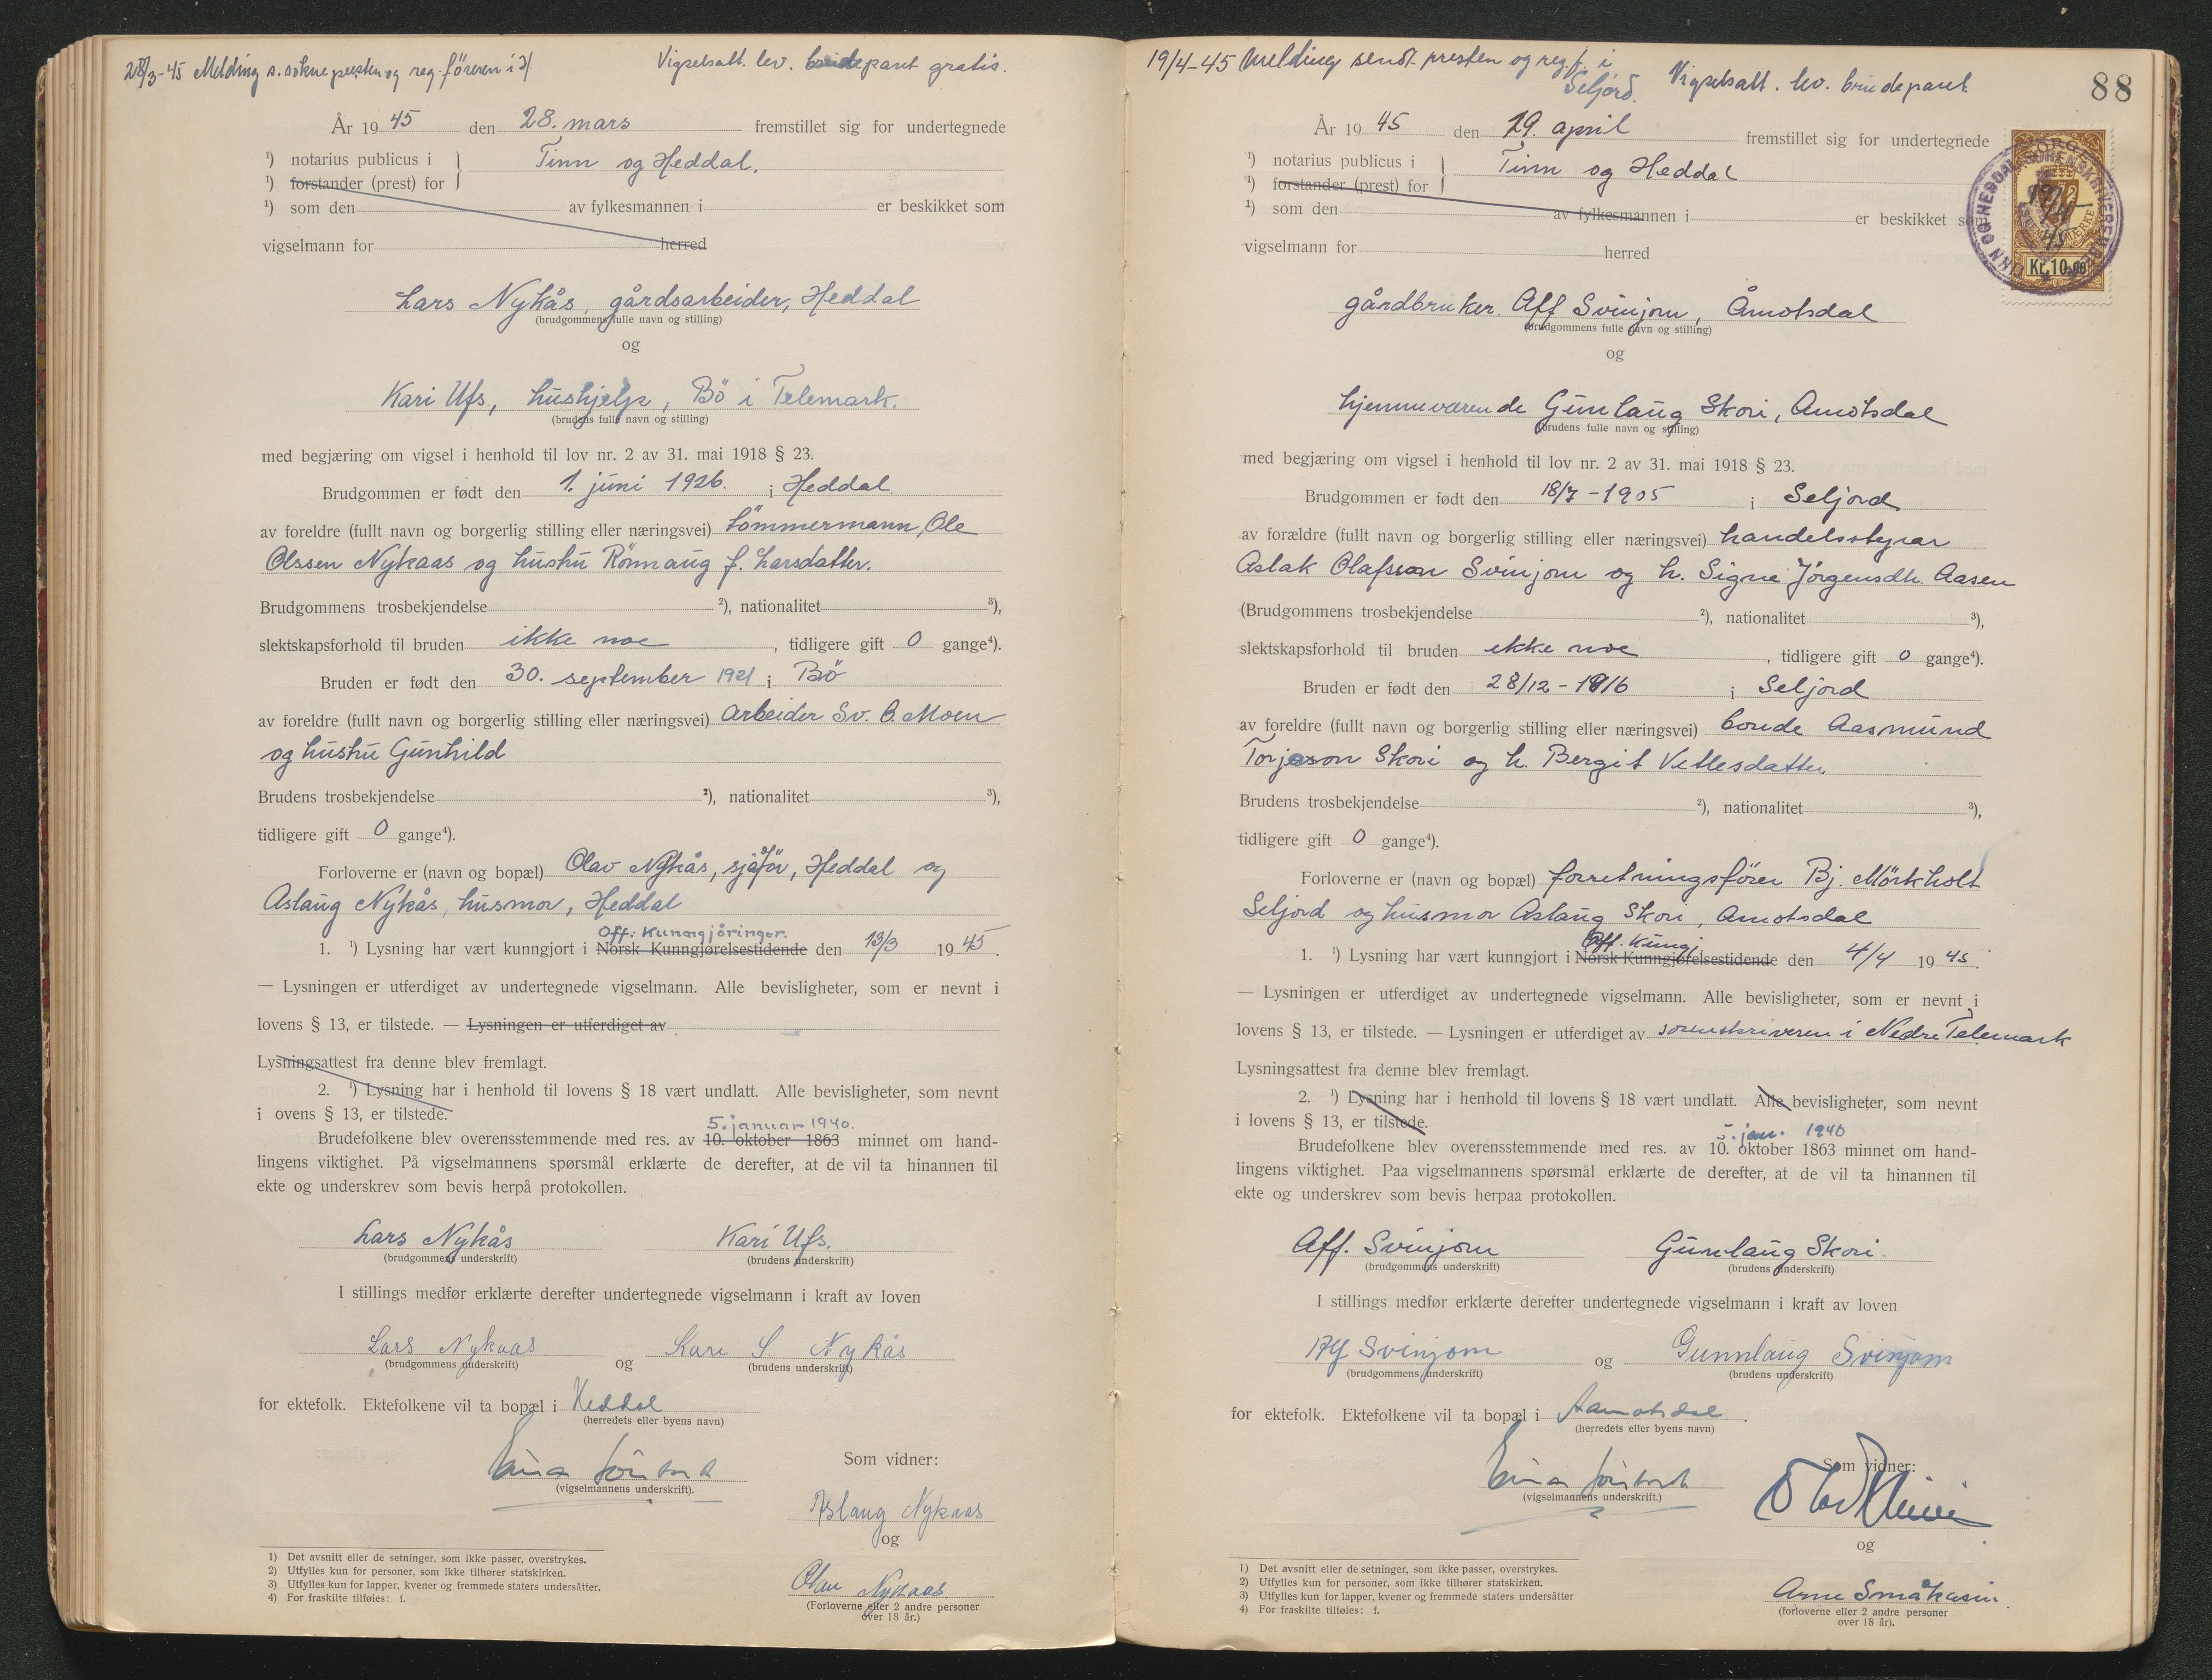 28/3-45 Melding s. sokneprestenog reg. föreren i H
Vigselsatt. lev. brudeparet gratis.
År 19 45 den 28. mars fremstillet sig for undertegnede
¹) notarius publicus i } Tinn og Heddal.
¹) forstander (prest) for
¹) som den av fylkesmannen i er beskikket som
vigselmann for herred
Lars Nykås, gårdsarbeider, Heddal
(brudgommens fulle navn og stilling)
og
Kari Ufs, hushjelp, Bö i Telemark.
(brudens fulle navn og stilling)
med begjæring om vigsel i henhold til lov nr. 2 av 31. mai 1918 § 23.
Brudgommen er født den 1. juni 1926. i Heddal.
av foreldre (fullt navn og borgerlig stilling eller næringsvei) tömmermann Ole
Olssen Nykaas og hustru Rönnaug f. Larsdatter.
Brudgommens trosbekjendelse ²), nationalitet ³),
slektskapsforhold til bruden ikke noe, tidligere gift 0 gange⁴).
Bruden er født den 30. september 1921 i Bö
av foreldre (fullt navn og borgerlig stilling eller næringsvei) Arbeider Sv. O. Moen
og hustru Gunhild
Brudens trosbekjendelse ²), nationalitet ³),
tidligere gift 0 gange⁴).
Forloverne er (navn og bopæl) Olav Nykås, sjåför, Heddal og
Aslaug Nykås, husmor, Heddal
Off. Kunngjöringer.
1. ¹) Lysning har vært kunngjort i Norsk Kunngjørelsestidende den 13/3 19 45.
— Lysningen er utferdiget av undertegnede vigselmann. Alle bevisligheter, som er nevnt i
lovens § 13, er tilstede. — Lysningen er utferdiget av
Lysningsattest fra denne blev fremlagt.
2. ¹) Lysning har i henhold til lovens § 18 vært undlatt. Alle bevisligheter, som nevnt
i ovens § 13, er tilstede.
5. januar 1940.
Brudefolkene blev overensstemmende med res. av 10. oktober 1863 minnet om hand-
lingens viktighet. På vigselmannens spørsmål erklærte de derefter, at de vil ta hinannen til
ekte og underskrev som bevis herpå protokollen.
Lars Nykås Kari Ufs.
(brudgommens underskrift) (brudens underskrift)
I stillings medfør erklærte derefter undertegnede vigselmann i kraft av loven
Lars Nykaas og Kari S. Nykås
(brudgommens underskrift) (brudens underskrift)
for ektefolk. Ektefolkene vil ta bopæl i Heddal
(herredets eller byens navn)
(vigselmannens underskrift).
Som vidner:
Aslaug Nykaas
og
Olav Nykaas
(Forloverne eller 2 andre personer
over 18 år.)
1) Det avsnitt eller de setninger, som ikke passer, overstrykes.
2) Utfylles kun for personer, som ikke tilhører statskirken.
3) Utfylles kun for lapper, kvener og fremmede staters undersåtter.
4) For fraskilte tilføies: f.
19/4-45 Melding sendt presten og reg.f. i
Seljord. Vigselsatt. lev. brudeparet.
88
År 19 45 den 19. april fremstillet sig for undertegnede
¹) notarius publicus i } Tinn og Heddal
¹) forstander (prest) for
¹) som den av fylkesmannen i er beskikket som
vigselmann for herred
TINN OG HEDDAL SORENSKRIVEREMBEDE
19/4
45
Kr. 10.00
gårdbruker Aff Svinjom, Åmotsdal
(brudgommens fulle navn og stilling)
og
hjemmeværende Gunlaug Skori, Amotsdal
(brudens fulle navn og stilling)
med begjæring om vigsel i henhold til lov nr. 2 av 31. mai 1918 § 23.
Brudgommen er født den 18/7-1905 i Seljord
av forældre (fullt navn og borgerlig stilling eller næringsvei) handelsstyrar
Aslak Olafsson Svinjom og h. Signe Jörgensdtr. Aasen
(Brudgommens trosbekjendelse ²), nationalitet ³),
slektskapsforhold til bruden ikke noe, tidligere gift 0 gange⁴).
Bruden er født den 28/12-1916 i Seljord
av foreldre (fullt navn og borgerlig stilling eller næringsvei) bonde Aasmund
Torjesson Skori og h. Bergit Vetlesdatter
Brudens trosbekjendelse ²), nationalitet ³),
tidligere gift 0 gange⁴).
Forloverne er (navn og bopæl) forretningsförer Bj. Mörkholt
Seljord og husmor Aslaug Skori, Amotsdal
Off. Kungj.
1. ¹) Lysning har vært kunngjort i Norsk Kunngjørelsestidende den 4/4 19 45.
— Lysningen er utferdiget av undertegnede vigselmann. Alle bevisligheter, som er nevnt i
lovens § 13, er tilstede. — Lysningen er utferdiget av sorenskriveren i Nedre Telemark
Lysningsattest fra denne blev fremlagt.
2. ¹) Lysning har i henhold til lovens § 18 vært undlatt. Alle bevisligheter, som nevnt
i lovens § 13, er tilstede.
5. jan. 1940
Brudefolkene blev overensstemmende med res. av 10. oktober 1863 minnet om hand-
lingens viktighet. Paa vigselmannens spørsmål erklærte de derefter, at de vil ta hinannen til
ekte og underskrev som bevis herpaa protokollen.
Aff. Svinjom Gunlaug Skori.
(brudgommens underskrift) (brudens underskrift)
I stillings medfør erklærte derefter undertegnede vigselmann i kraft av loven
Aff Svinjom og Gunnlaug Svinjom
(brudgommens underskrift) (brudens underskrift)
for ektefolk. Ektefolkene vil ta bopæl i Aamotsdal.
(herredets eller byens navn)
(vigselmannens underskrift.)
Som vidner:
og
Arne Småkasin
(forloverne eller 2 andre personer
over 18 år).
1) Det avsnitt eller de setninger, som ikke passer, overstrykes.
2) Utfylles kun for personer, som ikke tilhører statskirken.
3) Utfylles kun for lapper, kvener og fremmede staters undersåtter
4) For fraskilte tilføies: f.